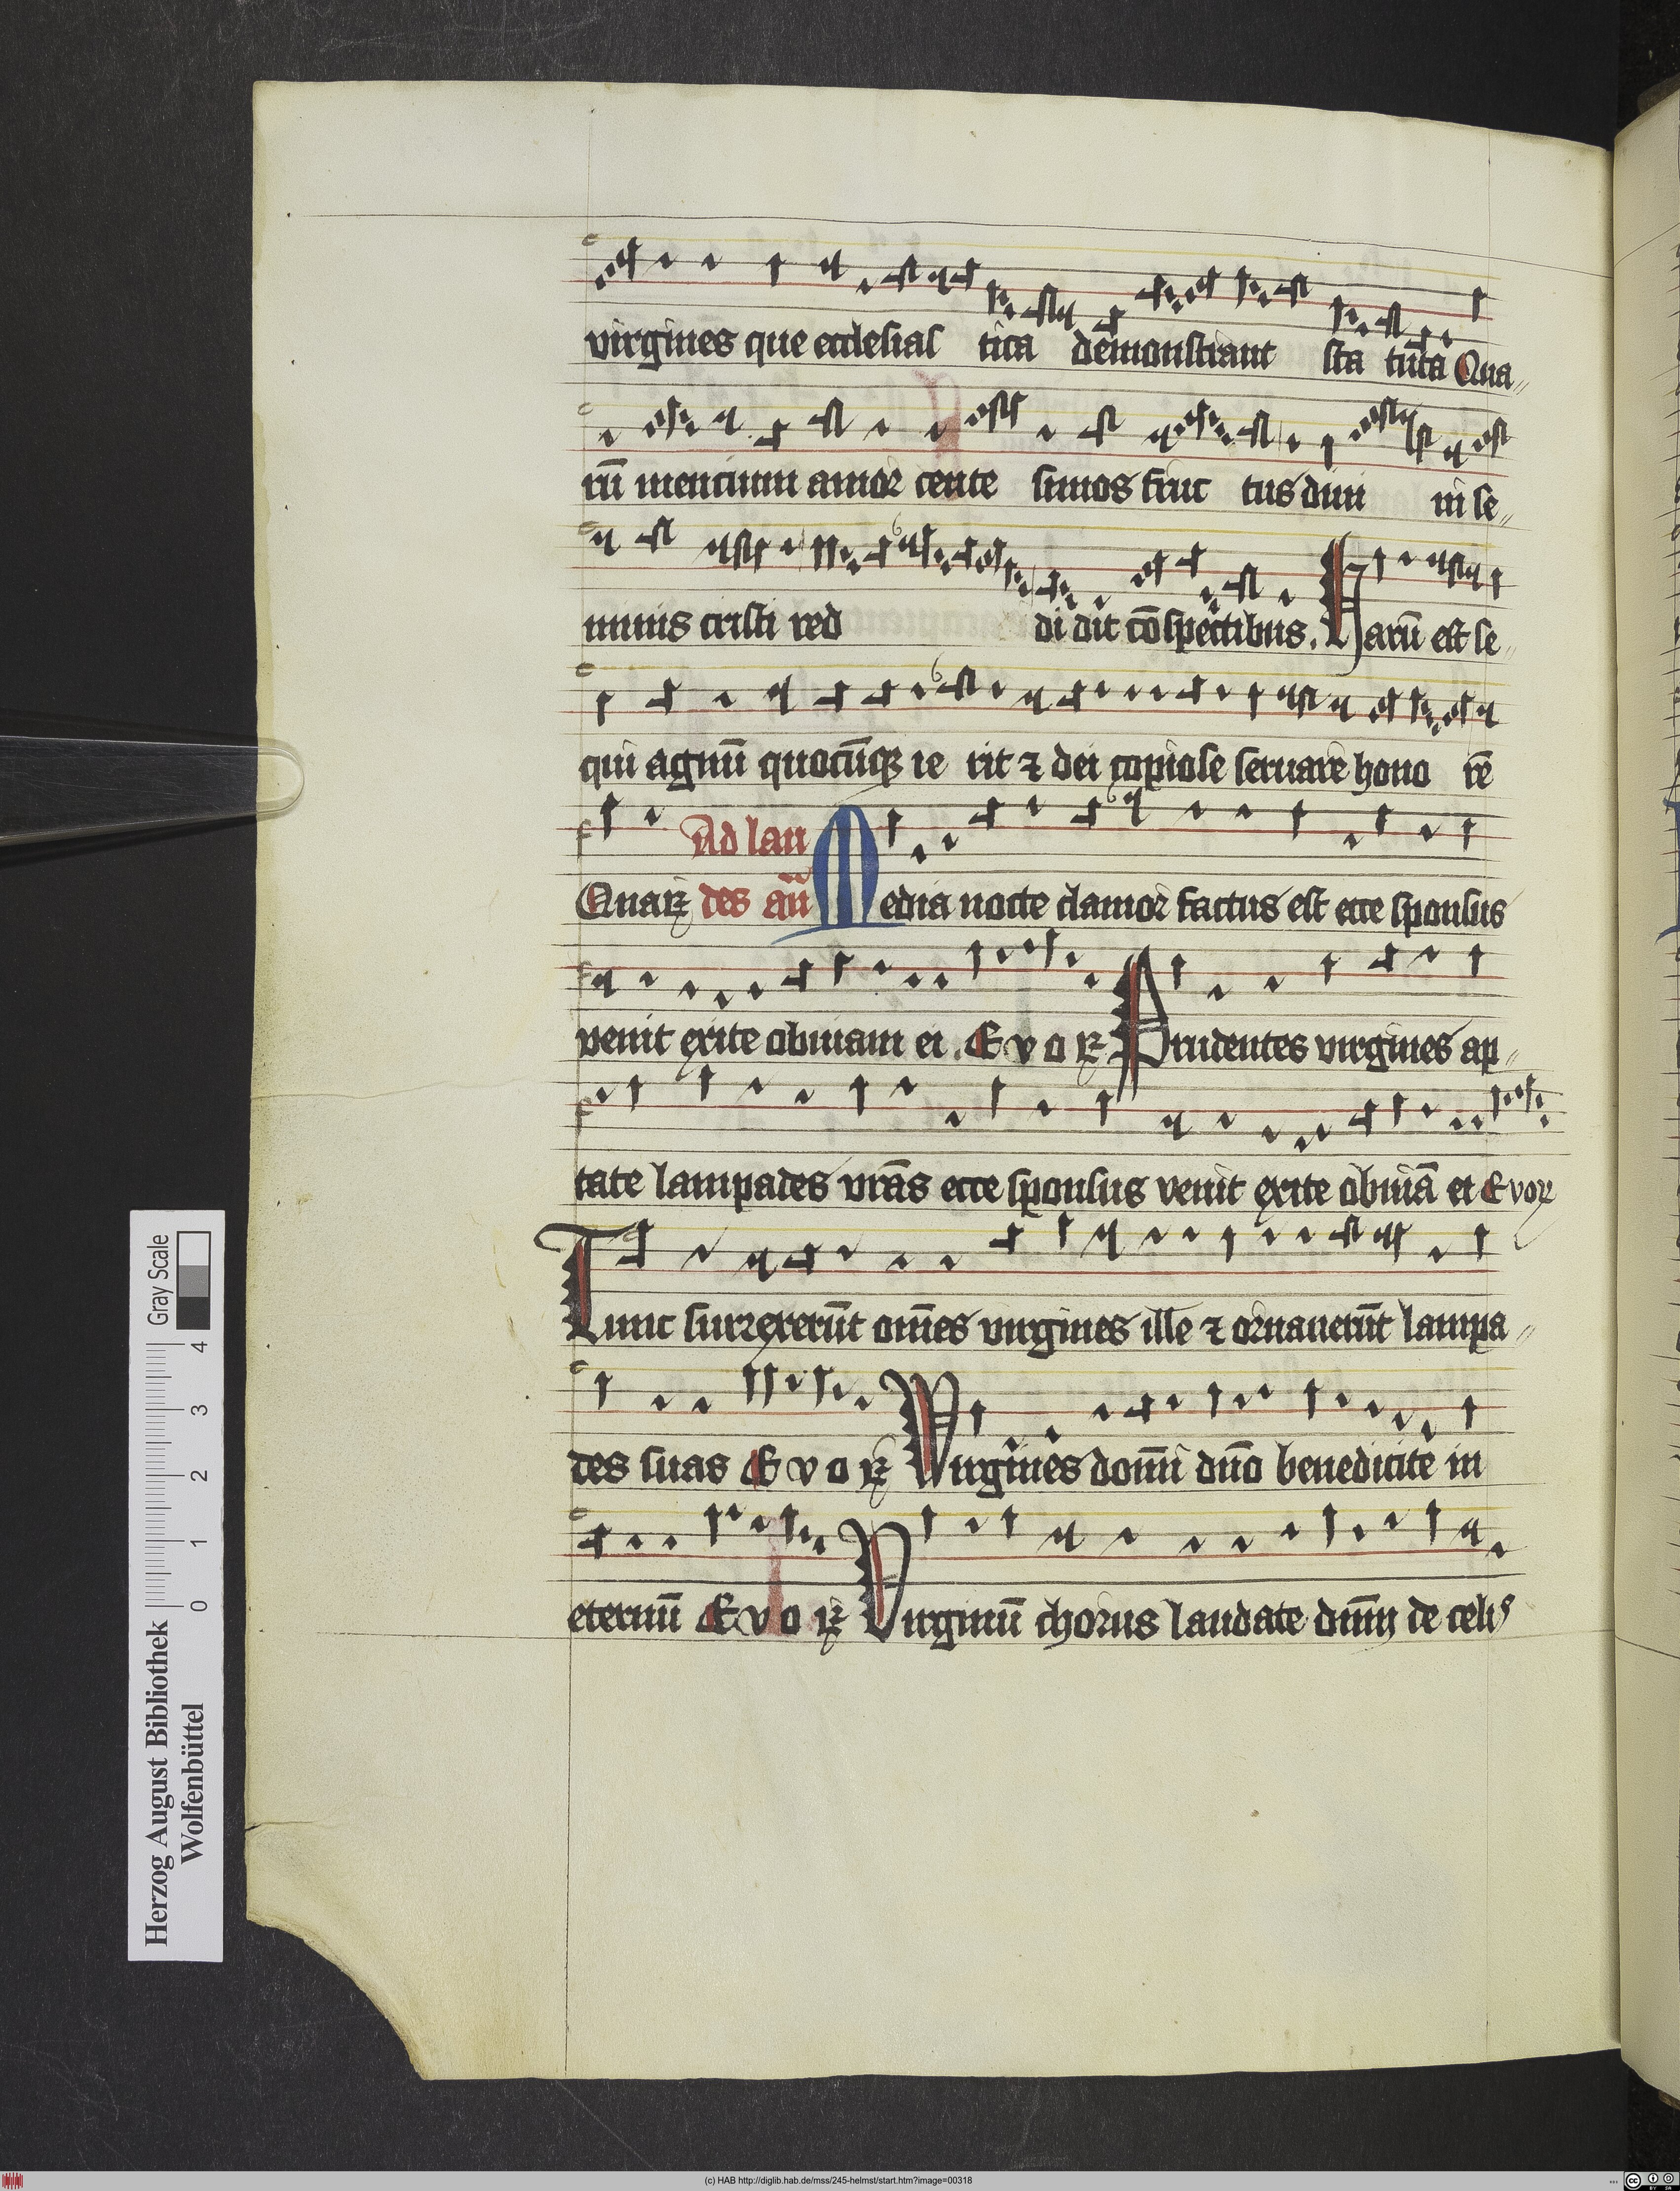 virgines que ecclesias tica demonstrant sta tuta Qua„
rū mentium amor cente simos fruc tus dim ni se„
minis cristi red di dit cō spectibus. Harū est se„
qui agnū quocūqꝫ ie rit ⁊ dei copiose seruare hono rē
Ad lau
Quaꝝ des añ Media nocte clamor factus est ecce sponsus
venit exite obuiam ei. E v o ꝝ Prudentes virgines ap„
tate lampades vrās ecce sponsus venit exite obuiā ei E voꝝ
Tunc surrexerūt om̄es virgines ille ⁊ ornauerūt lampa„
des suas E v o ꝝ Virgines domī dn̄o benedicite in
eternū E v o ꝝ Virginū chorus laudate dn̄m de celis
Herzog August Bibliothek
Wolfenbüttel
0 1 2 3 4
Gray Scale
(c) HAB http://diglib.hab.de/mss/245-helmst/start.htm?image=00318